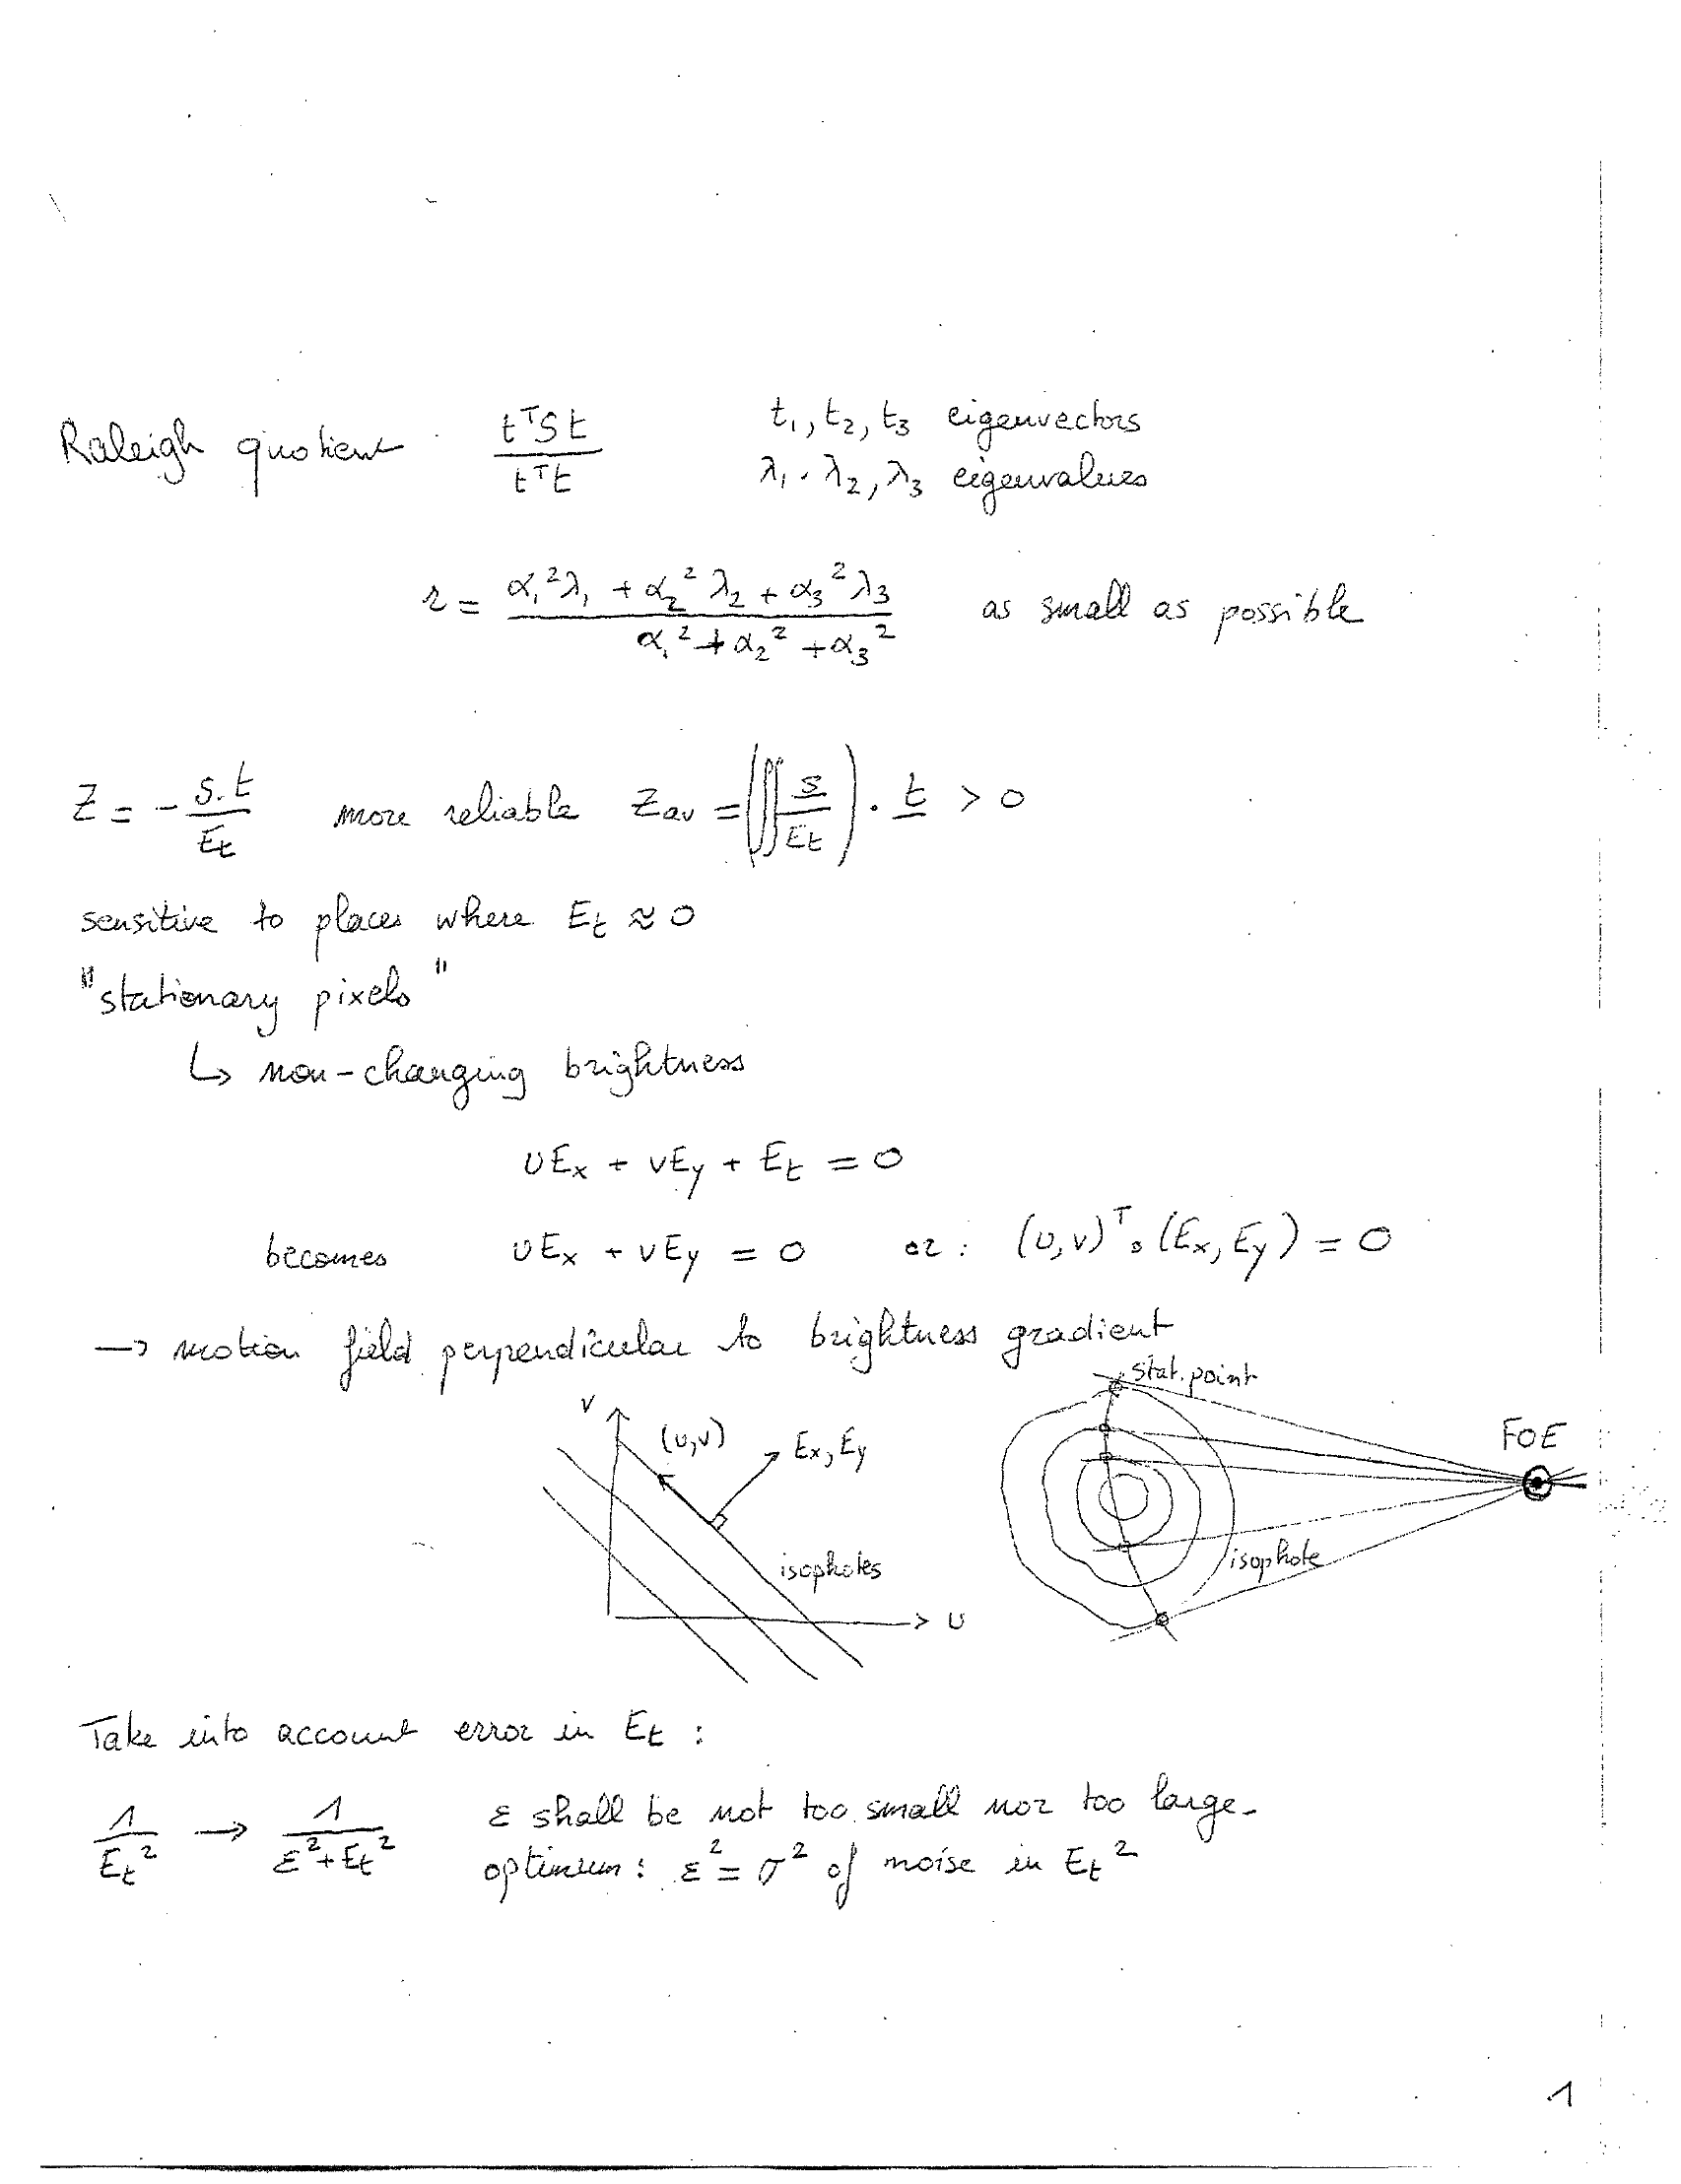 Raleigh quotient tᵀSt / tᵀt t₁, t₂, t₃ eigenvectors
λ₁, λ₂, λ₃ eigenvalues
r = (α₁²λ₁ + α₂²λ₂ + α₃²λ₃) / (α₁² + α₂² + α₃²) as small as possible
Z = - s.t / Et more reliable Zav = (∬ s / Et) . t > 0
sensitive to places where Et ≈ 0
"stationary pixels"
↳ non-changing brightness
uEx + vEy + Et = 0
becomes uEx + vEy = 0 or: (u,v)ᵀ∘(Ex, Ey) = 0
→ motion field perpendicular to brightness gradient
stat. point
v (u,v) Ex, Ey
FOE
isophotes
isophote
u
Take into account error in Et :
1 / Et² → 1 / (ε² + Et²) ε shall be not too small nor too large.
optimum: ε² = σ² of noise in Et²
1